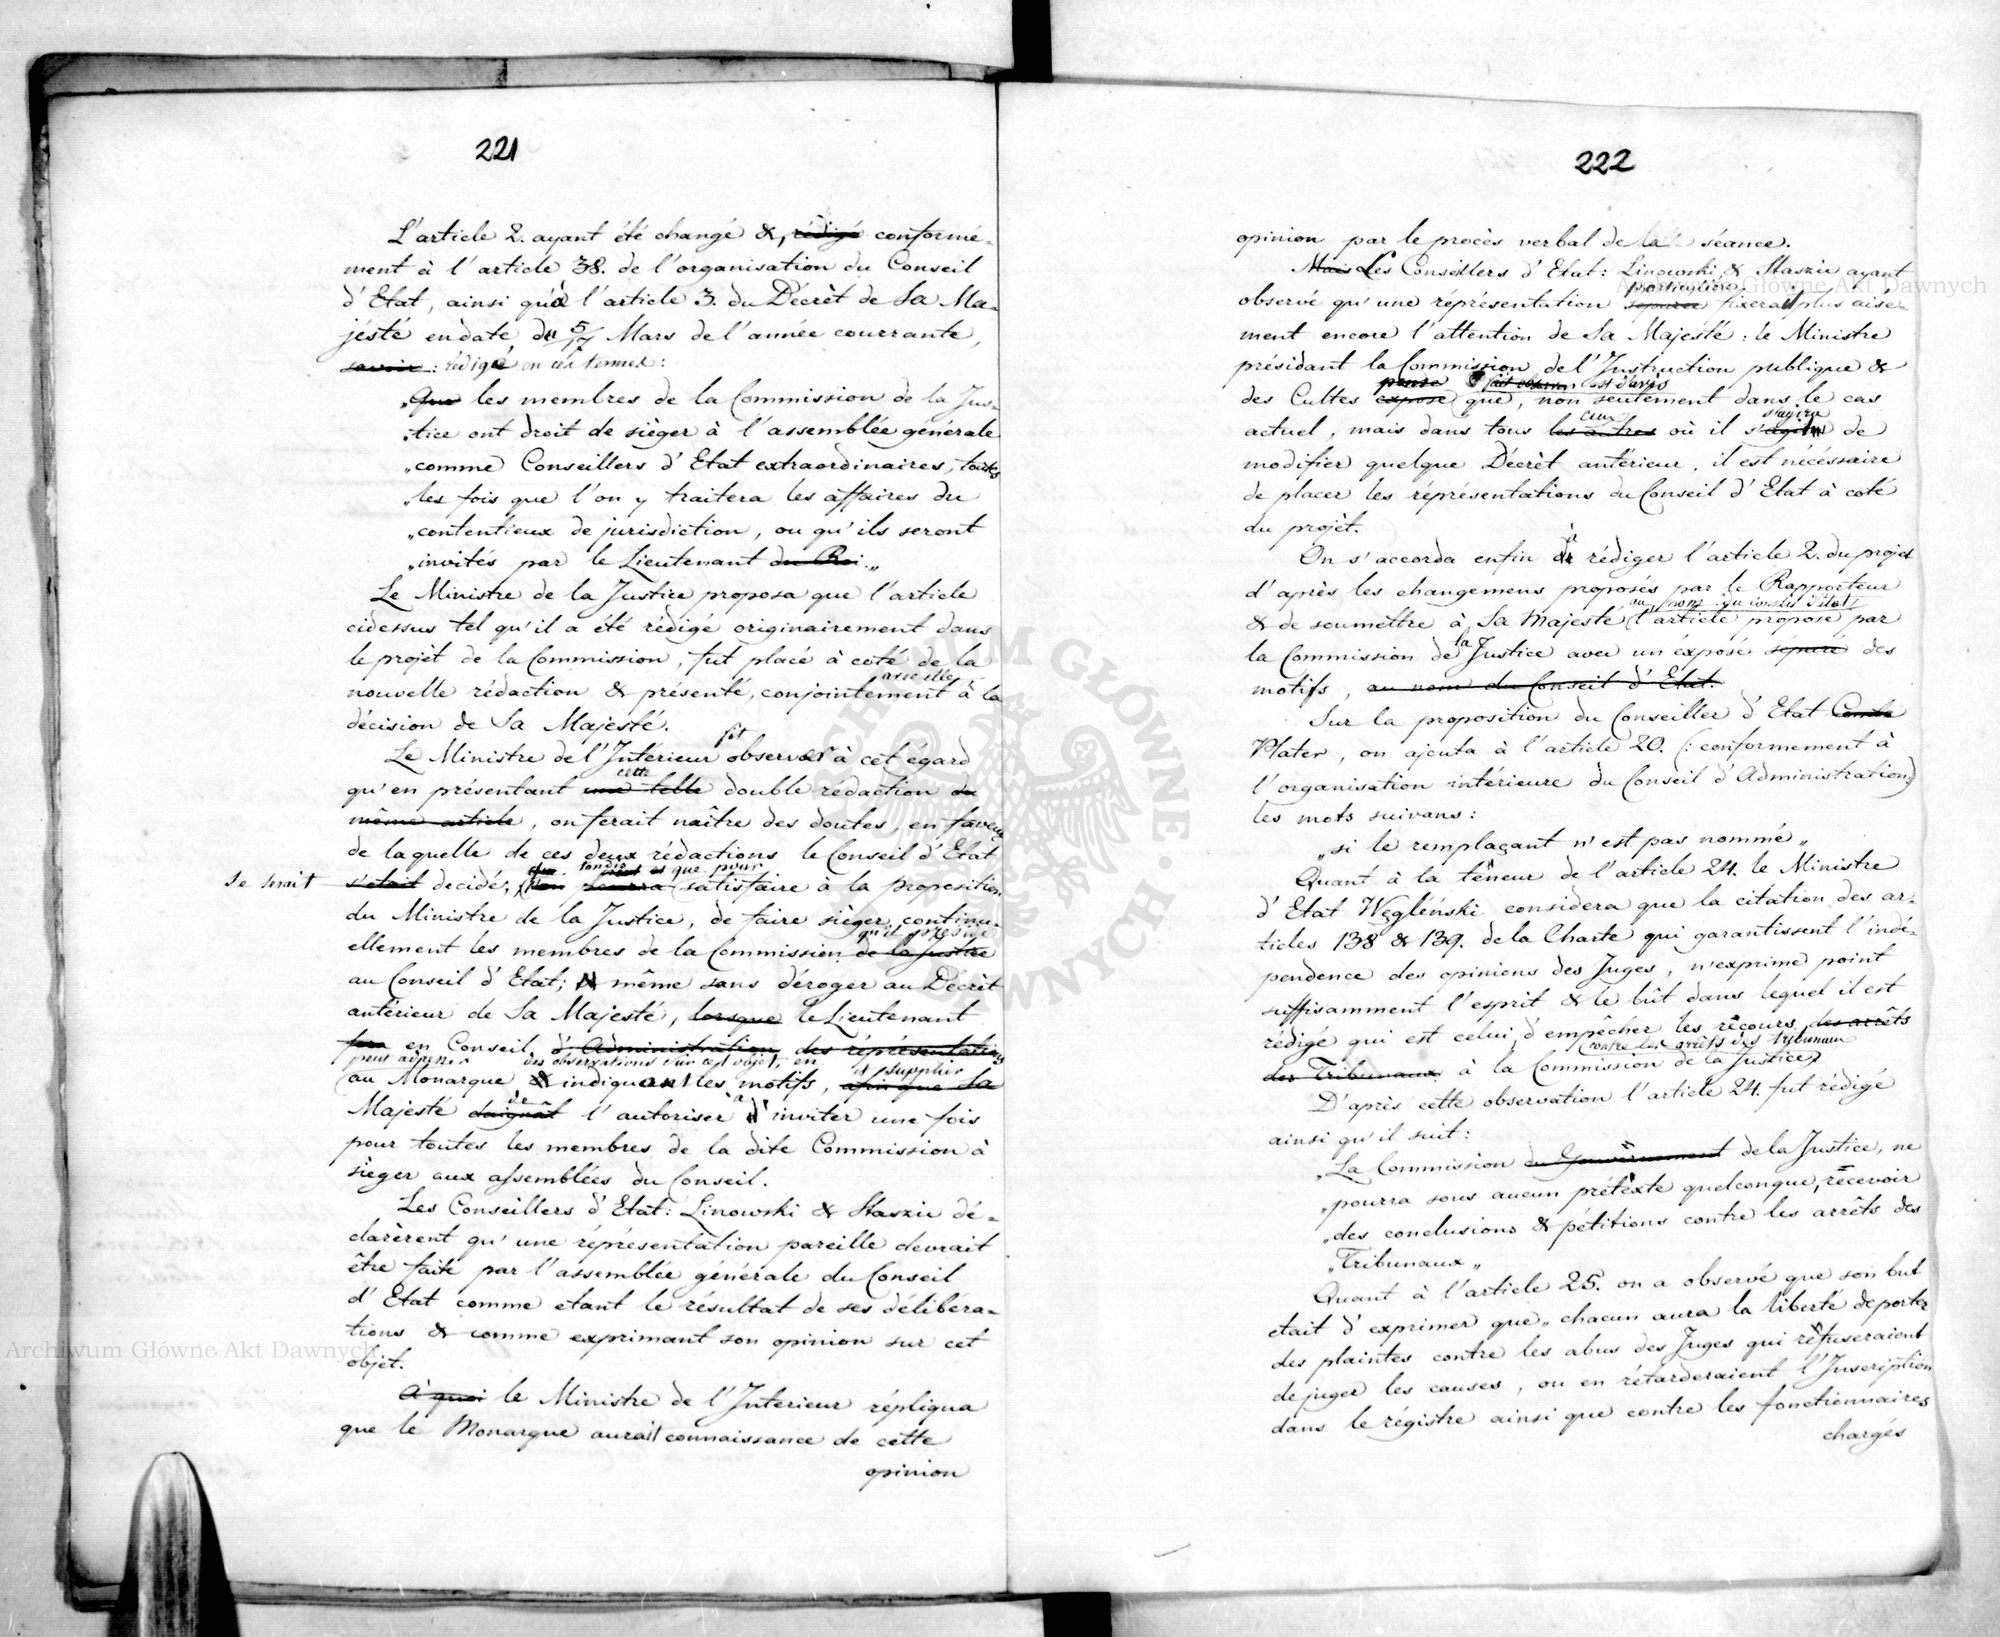 221
L'article 2. ayant été changé &, rédigé conformé-
ment à l'article 38. de l'organisation du Conseil
d'Etat, ainsi qu'à l'article 3. du Décrèt de Sa Ma-
jésté en date du 5/17 Mars de l'année courrante,
savoir: rédigé en ces termes:
„Que les membres de la Commission de la Jus-
„tice ont droit de sièger à l'assemblée générale
„comme Conseillers d'Etat extraordinaires, toutes
„les fois que l'on y traitera les affaires du
„contentieux de jurisdiction, ou qu'ils seront
„invités par le Lieutenant du Roi.„
Le Ministre de la Justice proposa que l'article
cidessus tel qu'il a été rédigé originairement dans
le projèt de la Commission, fut placé à coté de la
avec elle
nouvelle rédaction & présenté, conjointement à la
décision de Sa Majesté.
fit
Le Ministre de l'Intérieur observer à cet égard
cette
qu'en présentant une telle double rédaction du
même article, on ferait naître des doutes, en faveur
de laquelle de ces deux rédactions le Conseil d'Etat
que pour
se serait s'etait decidé, satisfaire à la proposition
du Ministre de la Justice, de faire sièger continu-
qu'il préside
ellement les membres de la Commission de la Justice
au Conseil d'Etat; même sans déroger au Décrèt
antérieur de Sa Majesté, lorsque le Lieutenant
fera en Conseil d'Administration des réprésentations
peut adresser des observations sur cet objet, en
et supplier
au Monarque & indiquant les motifs, afin que Sa
de
Majesté daignât l'autoriser à d'inviter une fois
pour toutes les membres de la dite Commission à
sièger aux assemblées du Conseil.
Les Conseillers d'Etat: Linowski & Staszic dé-
clarèrent qu'une réprésentation pareille devrait
être faite par l'assemblée générale du Conseil
d'Etat comme etant le résultat de ses délibéra-
tions & comme exprimant son opinion sur cet
objet.
A quoi le Ministre de l'Interieur répliqua
que le Monarque aurait connaissance de cette
opinion
222
opinion par le procès verbal de la séance.
Mais Les Conseillers d'Etat: Linowski & Staszic ayant
particulière
observé qu'une réprésentation separée fixerait plus aisé-
ment encore l'attention de Sa Majesté: le Ministre
présidant la Commission de l'Instruction publique &
pense fait observer est d'avis
des Cultes expose que, non seulement dans le cas
ceux s'agira
actuel, mais dans tous les autres où il s'agit de
modifier quelque Décrèt antérieur, il est nécéssaire
de placer les réprésentations du Conseil d'Etat à coté
du projèt.
On s'accorda enfin à rédiger l'article 2. du projèt
d'après les changemens proposés par le Rapporteur
au nom du conseil d'état
& de soumettre à Sa Majesté l'article proposé par
la Commission de la Justice avec un éxposé séparé des
motifs, au nom du Conseil d'Etat.
Sur la proposition du Conseiller d'Etat Comte
Plater, on ajouta à l'article 20. (: conformement à
l'organisation intérieure du Conseil d'Administration)
les mots suivans:
„si le remplaçant n'est pas nommé„
Quant à la teneur de l'article 24. le Ministre
d'Etat Węgléński considera que la citation des ar-
ticles 138 & 139. de la Charte qui garantissent l'indé-
pendence des opinions des Juges, n'exprime point
suffisamment l'esprit & le bût dans lequel il est
rédigé qui est celui, d'empêcher les recours, des arrêts
contre les arrêts des tribunaux
des Tribunaux à la Commission de la Justice.
D'après cette observation l'article 24. fut rédigé
ainsi qu'il suit:
„La Commission du Gouvernement de la Justice, ne
„pourra sous aucun prétexte quelconque, recevoir
„des conclusions & pétitions contre les arrêts des
„Tribunaux„
Quant à l'article 25. on a observé que son but
etait d'exprimer que„ chacun aura la liberté de porter
des plaintes contre les abus des Juges qui refuseraient
de juger les causes, ou en rétarderaient l'Inscription
dans le régistre ainsi que contre les fonctionnaires
chargés
Archiwum Główne Akt Dawnych
Archiwum Główne Akt Dawnych
ARCHIWUM GŁÓWNE AKT DAWNYCH